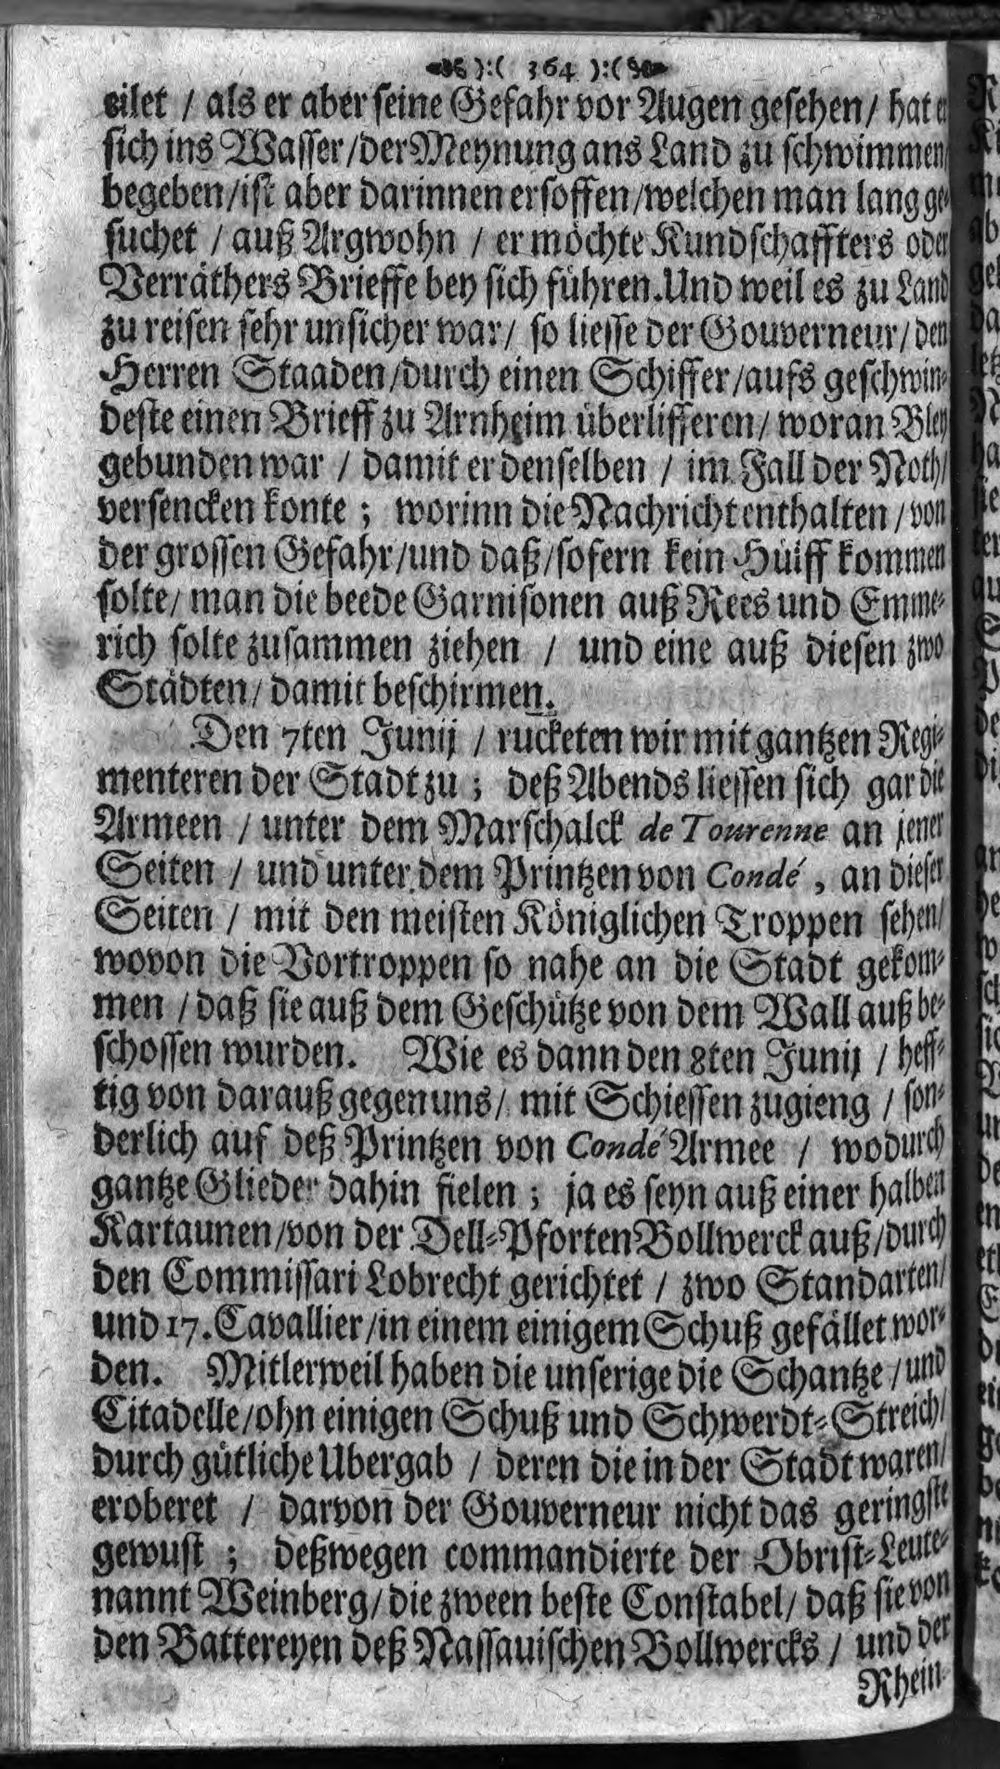 ):( 364 ):(
eilet / als er aber seine Gefahr vor Augen gesehen / hat er
sich ins Wasser / der Meynung ans Land zu schwimmen /
begeben / ist aber darinnen ersoffen / welchen man lang ge-
suchet / auß Argwohn / er möchte Kundschaffters oder
Verräthers Brieffe bey sich führen. Und weil es zu Land
zu reisen sehr unsicher war / so liesse der Gouverneur / den
Herren Staaden / durch einen Schiffer / aufs geschwin-
deste einen Brieff zu Arnheim überlifferen / woran Bley
gebunden war / damit er denselben / im Fall der Noth /
versencken konte ; worinn die Nachricht enthalten / von
der grossen Gefahr / und daß / sofern kein Hülff kommen
solte / man die beede Garnisonen auß Rees und Emme-
rich solte zusammen ziehen / und eine auß diesen zwo
Städten / damit beschirmen.
Den 7ten Junij / rucketen wir mit gantzen Regi-
menteren der Stadt zu ; deß Abends liessen sich gar die
Armeen / unter dem Marschalck de Tourenne an jener
Seiten / und unter dem Printzen von Condé , an dieser
Seiten / mit den meisten Königlichen Troppen sehen /
wovon die Vortroppen so nahe an die Stadt gekom-
men / daß sie auß dem Geschütze von dem Wall auß be-
schossen wurden. Wie es dann den 8ten Junij / heff-
tig von darauß gegen uns / mit Schiessen zugieng / son-
derlich auf deß Printzen von Condé Armee / wodurch
gantze Glieder dahin fielen ; ja es seyn auß einer halben
Kartaunen / von der Dell-Pforten Bollwerck auß / durch
den Commissari Lobrecht gerichtet / zwo Standarten /
und 17. Cavallier / in einem einigem Schuß gefället wor-
den. Mitlerweil haben die unserige die Schantze / und
Citadelle / ohn einigen Schuß und Schwerdt-Streich /
durch gütliche Ubergab / deren die in der Stadt waren /
eroberet / darvon der Gouverneur nicht das geringste
gewust ; deßwegen commandierte der Obrist-Leute-
nannt Weinberg / die zween beste Constabel / daß sie von
den Battereyen deß Nassauischen Bollwercks / und der
Rhein-